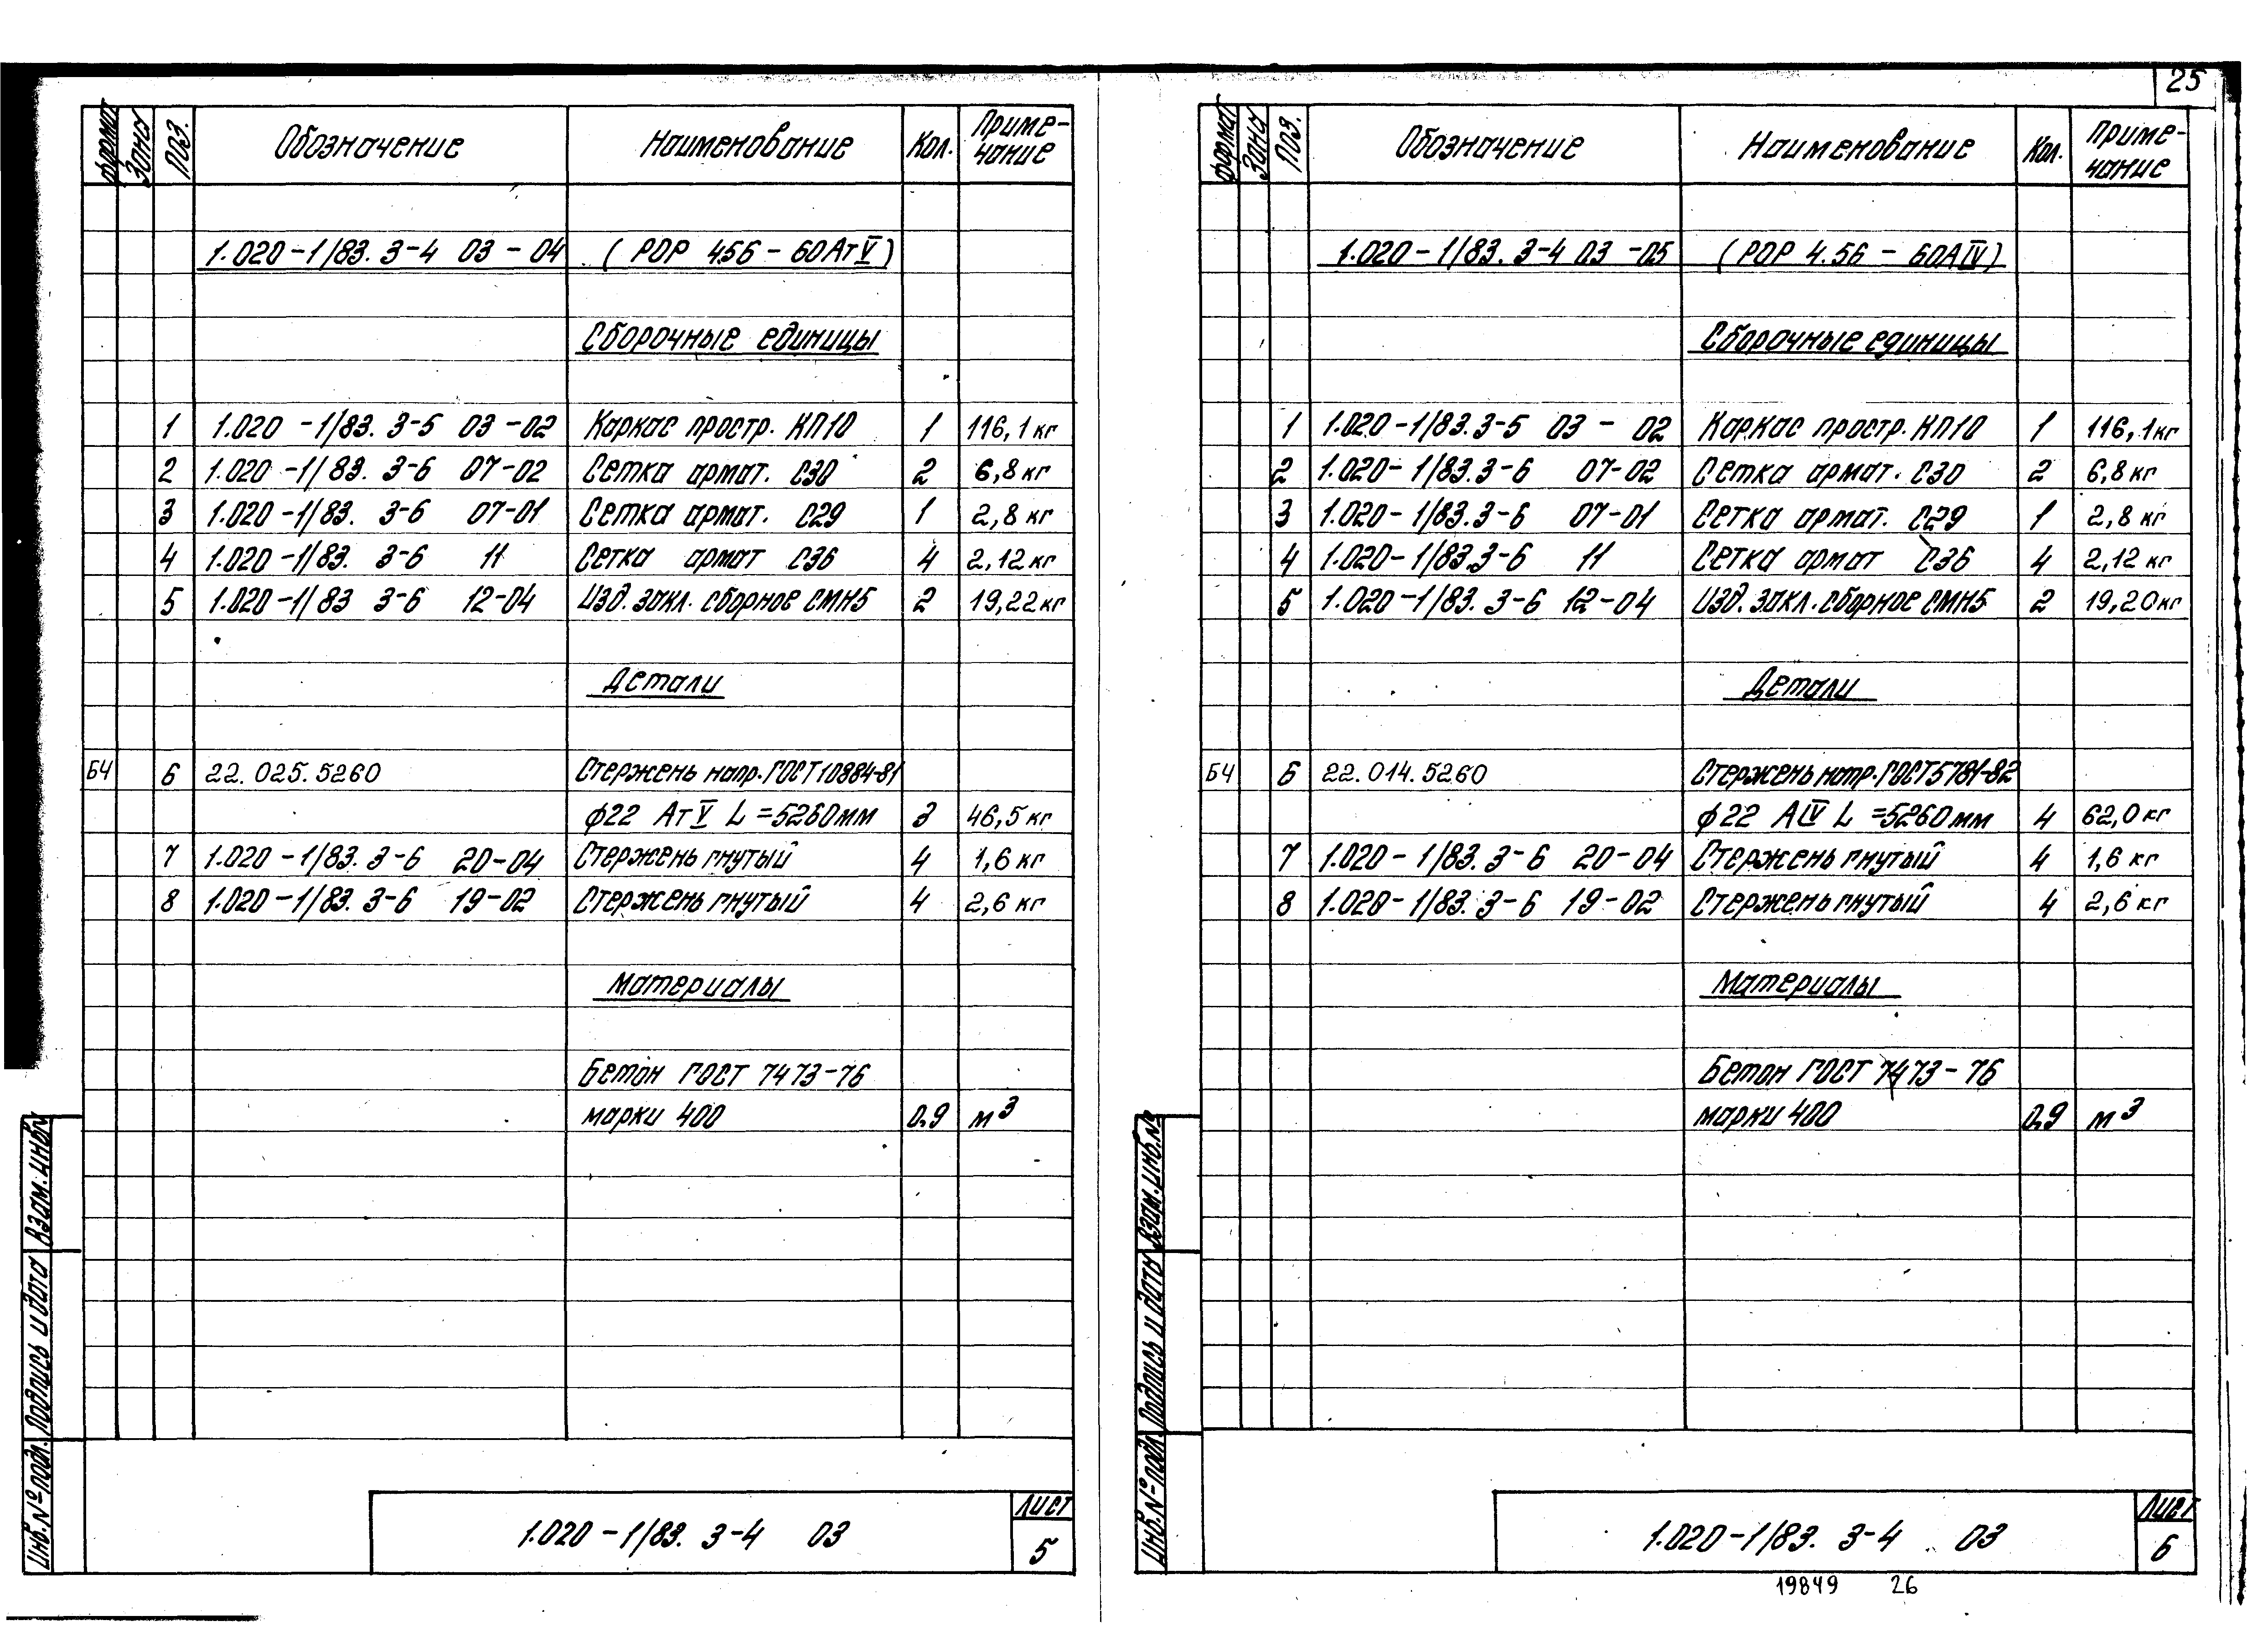 25
Формат Зона Поз. Обозначение Наименование Кол. Приме-
чание
1.020-1/83. 3-4 03-04 (РОР 4.56-60АтV)
Сборочные единицы
1 1.020-1/83. 3-5 03-02 Каркас простр. КП10 1 116,1 кг
2 1.020-1/83. 3-6 07-02 Сетка армат. С30 2 6,8 кг
3 1.020-1/83. 3-6 07-01 Сетка армат. С29 1 2,8 кг
4 1.020-1/83. 3-6 11 Сетка армат С36 4 2,12 кг
5 1.020-1/83 3-6 12-04 Изд. закл. сборное СМН5 2 19,22 кг
Детали
БЧ 6 22.025.5260 Стержень напр. ГОСТ 10884-81
ф22 АтV L=5260мм 3 46,5 кг
7 1.020-1/83. 3-6 20-04 Стержень гнутый 4 1,6 кг
8 1.020-1/83. 3-6 19-02 Стержень гнутый 4 2,6 кг
Материалы
Бетон ГОСТ 7473-76
марки 400 0.9 м³
Инв.№подл. Подпись и дата Взам.инв.№
1.020-1/83. 3-4 03
Лист
5
Формат Зона Поз. Обозначение Наименование Кол. Приме-
чание
1.020-1/83. 3-4 03-05 (РОР 4.56-60АIV)
Сборочные единицы
1 1.020-1/83. 3-5 03-02 Каркас простр. КП10 1 116,1 кг
2 1.020-1/83. 3-6 07-02 Сетка армат. С30 2 6,8 кг
3 1.020-1/83. 3-6 07-01 Сетка армат. С29 1 2,8 кг
4 1.020-1/83. 3-6 11 Сетка армат С36 4 2,12 кг
5 1.020-1/83. 3-6 12-04 Изд. закл. сборное СМН5 2 19,20 кг
Детали
БЧ 6 22.014.5260 Стержень напр. ГОСТ 5781-82
ф22 АIV L=5260мм 4 62,0 кг
7 1.020-1/83. 3-6 20-04 Стержень гнутый 4 1,6 кг
8 1.020-1/83. 3-6 19-02 Стержень гнутый 4 2,6 кг
Материалы
Бетон ГОСТ 7473-76
марки 400 0.9 м³
Инв.№подл. Подпись и дата Взам.инв.№
1.020-1/83. 3-4 03
Лист
6
19849 26